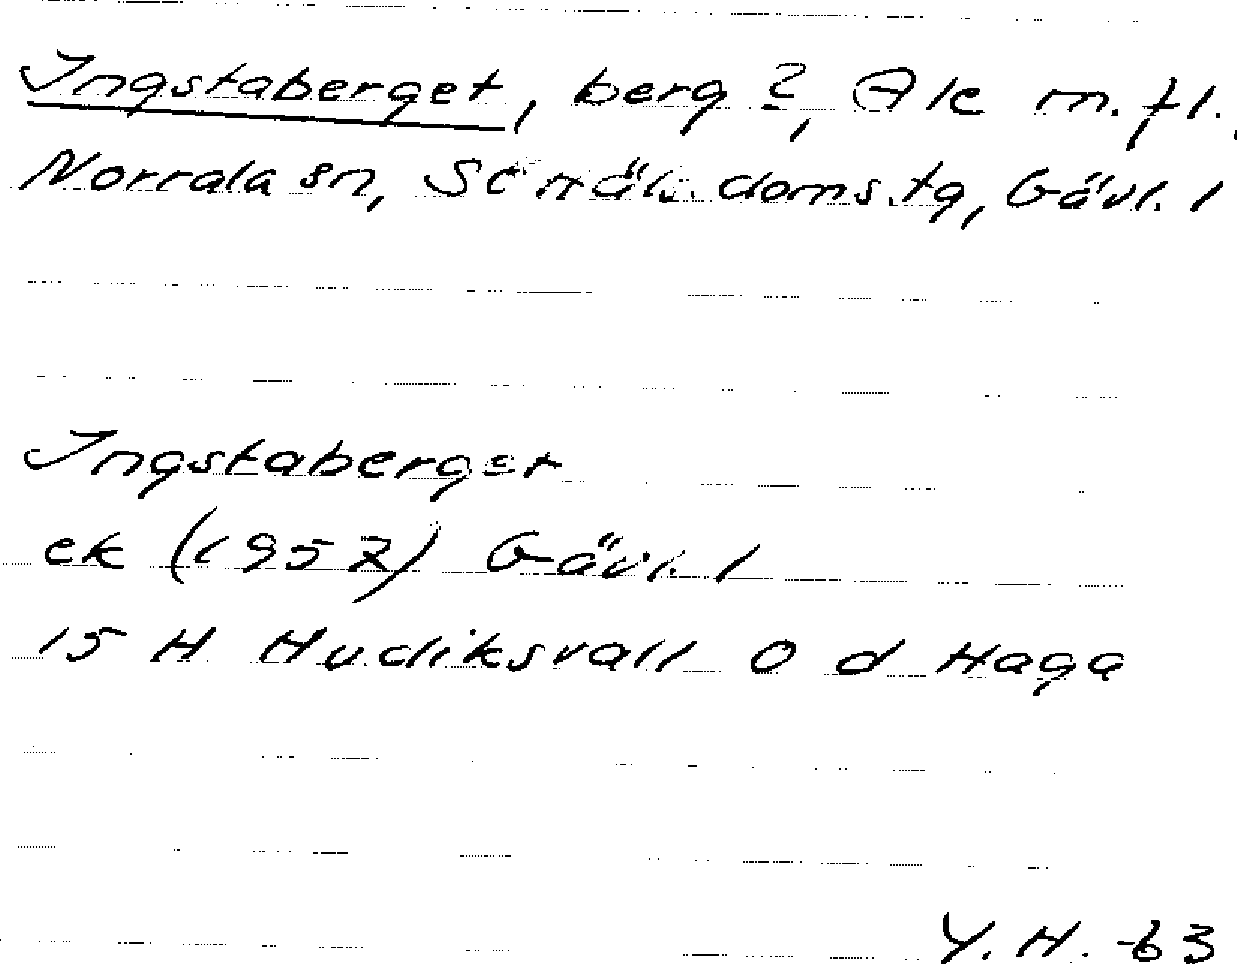 Ingstaberget, berg?, Ale m.fl.,
Norrala sn, S. Häls. doms.tg, Gävl. l
Ingstaberget
ek (1957) Gävl. l
15 H Hudiksvall 0 d Haga
Y.H. -63